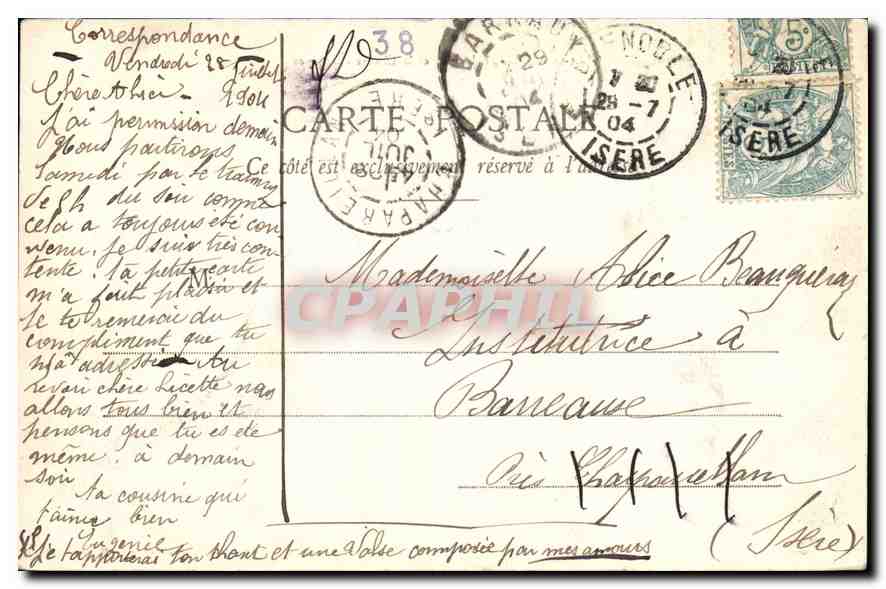 Correspondance
Vendredi 28 Juillet
Chère Alice - 1904
J'ai permission demain
Nous partirons
Samedi par le tramway
de 6h du soir comme
cela a toujours été con
venu. Je suis très con
tente. ta petite carte
m'a fait plaisir et
je te remercie du
compliment que tu
m'a adressée Au
revoir chère Licette nous
allons tous bien et
pensons que tu es de
même. à demain
soir
ta cousine qui
t'aime bien
Eugénie
PS Je t'apporterai ton chant et une Valse composée par mes amours
38
CARTE POSTALE
Ce côté est exclusivement réservé à l'adresse
M
GRENOBLE
29 -7
04
ISERE
BARRAUX
29
CHAPAREILLAN
ISERE
JUIL
5c
CPAPHIL
Mademoiselle Alice
Institutrice à
Barreause
Près Chapareillan
(Isère)